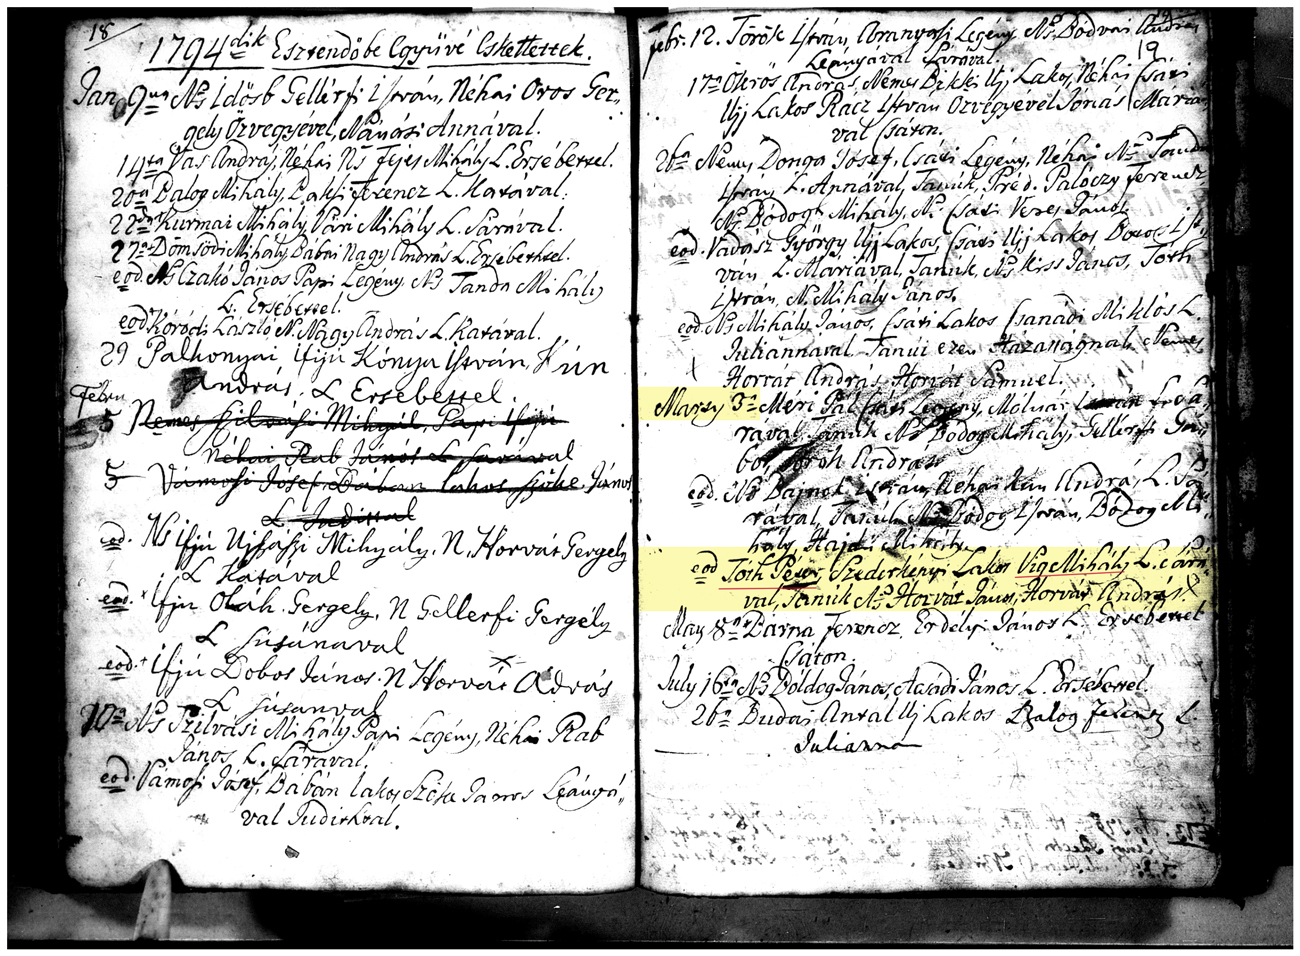 18
1794dik Esztendőbe Együvé Eskettettek.
Jan. 9na Ns Idősb Gellérfi István, Néhai Oros Ger-
gely Özvegyével, Nánási Annával.
14ta Vas András, Néhai Ns Fejes Mihály L. Ersébettel.
20a Balog Mihály, Pakfi Ferencz L. Katával.
22 Kurmai Mihály, Vári Mihály L. Sárával.
27a Dömsödi Mihály, Bábai Nagy András L. Ersébettel.
eod. Ns Czakó János Papi Legény, Ns Tanda Mihály
L. Ersébettel.
eod. Kóródi László, N. Nagy András L. Katával.
29 Palkonyai Ifjú Kónya István, Kún
András, L Ersébettel
Febru
5 Nemes Szilvási Mihály, Papi Ifjú
Néhai Rab János L. Sárával
5 Vámosi Josef Bában lakos Szőke János
L Judittal
eod. Ns Ifjú Ujfaszi Mihály, N, Horvát Gergely
L Katával
eod. Ifju Oláh Gergely, N Gellerfi Gergély
L Susánaval
eod. Ifjú Dobos János. N Horvát Adrás
L Súsanval
10a Ns Szilvási Mihály Papi Legény, Néhai Rab
János L. Sárával.
eod. Vámosi Jósef, Bábán lakos, Szőke János Leányá-
val Judithal.
19
Febr. 12. Török István, Aranyosi Legény, Ns Bódvai András
Leányával Sárával.
17a Ökrös András, Nemes Bikki Ujj Lakos, Néhai Csáti
Ujj Lakos Racz István Özvegyével Jónás Máriá-
val Csáton.
26a Nemes Donga Jósef, Csáti Legény, Néhai Ns Tanda
István L. Annával, Tanúk, Préd. Palóczy Ferencz
Ns Bódogh Mihály, Ns Csáti Veres János
eod. Vadász György Ujj Lakos, Csáti Ujj Lakos Boros Ist-
ván L. Máriával, Tanúk, Ns Kiss János, Tóth
István, N. Mihály János.
eod. Ns Mihály János, Csáti Lakos Csanádi Miklós L
Juliánnaval. Tanúi ezen Házasságnak Nemes
Horvát András, Horvát Sámuel.
Marsy 3a Méri Pál Csáti Legény, Mólnár L. Sá-
rával. Tanúk Ns Bódog Mihály, Gellérfi Gá-
bor, András
eod. Ns Bajnok István, Néhai Kún András L. Sá-
rával, Tanúk, Ns Bódog István, Bódog Mi-
hály, Hajdú Mihály
eod Tóth Péter, Szederkényi Lakos Vig Mihály L. Sárá-
val, Tanúk Ns Horvát János, Horvát András
May 8a Bárna Ferencz, Erdélyi János L. Ersébettel
Csáton.
July 16ta Ns Bóldog János, Asadi János L. Ersébettel.
26a Budai Antal Uj Lakos Balog Ferencz L.
Julianna